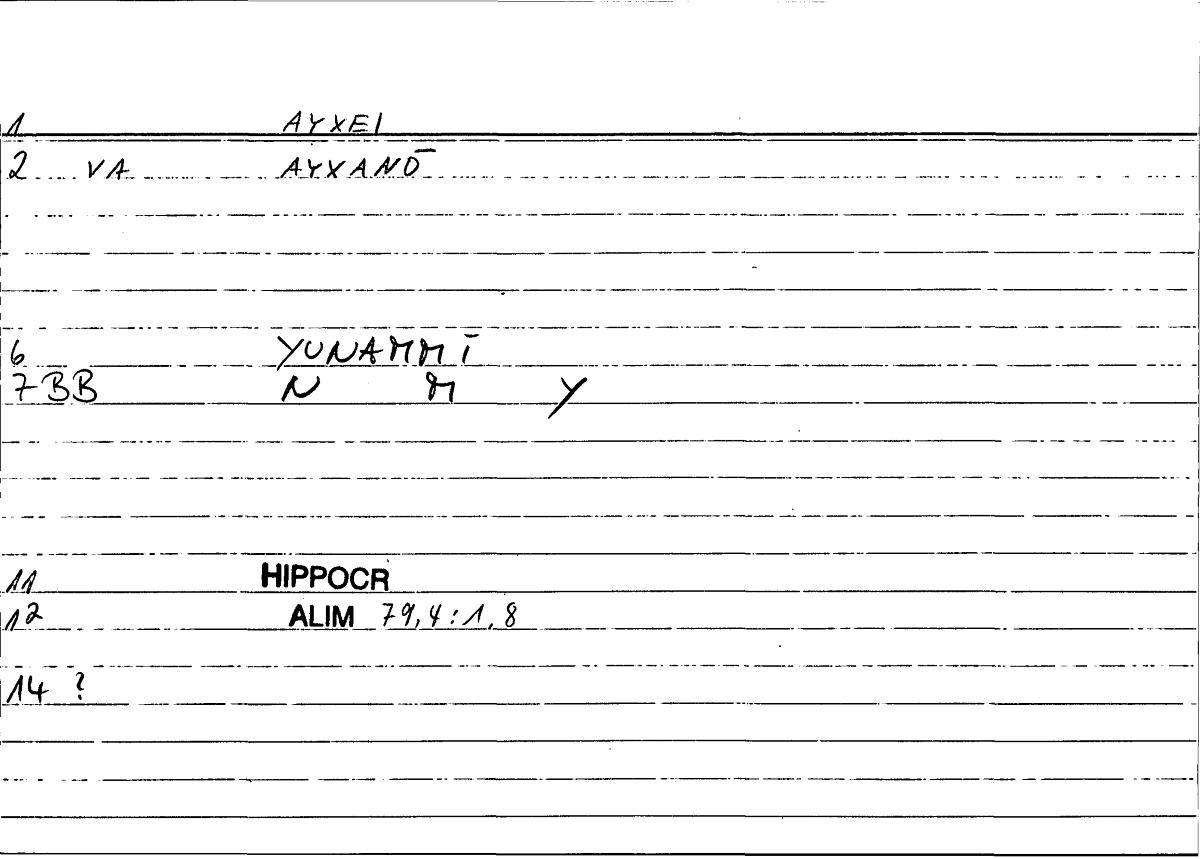 1 AYXEI
2 VA AYXANŌ
6 YUNAMMĪ
7 BB N M Y
11 HIPPOCR
12 ALIM 79,4:1,8
14 ?